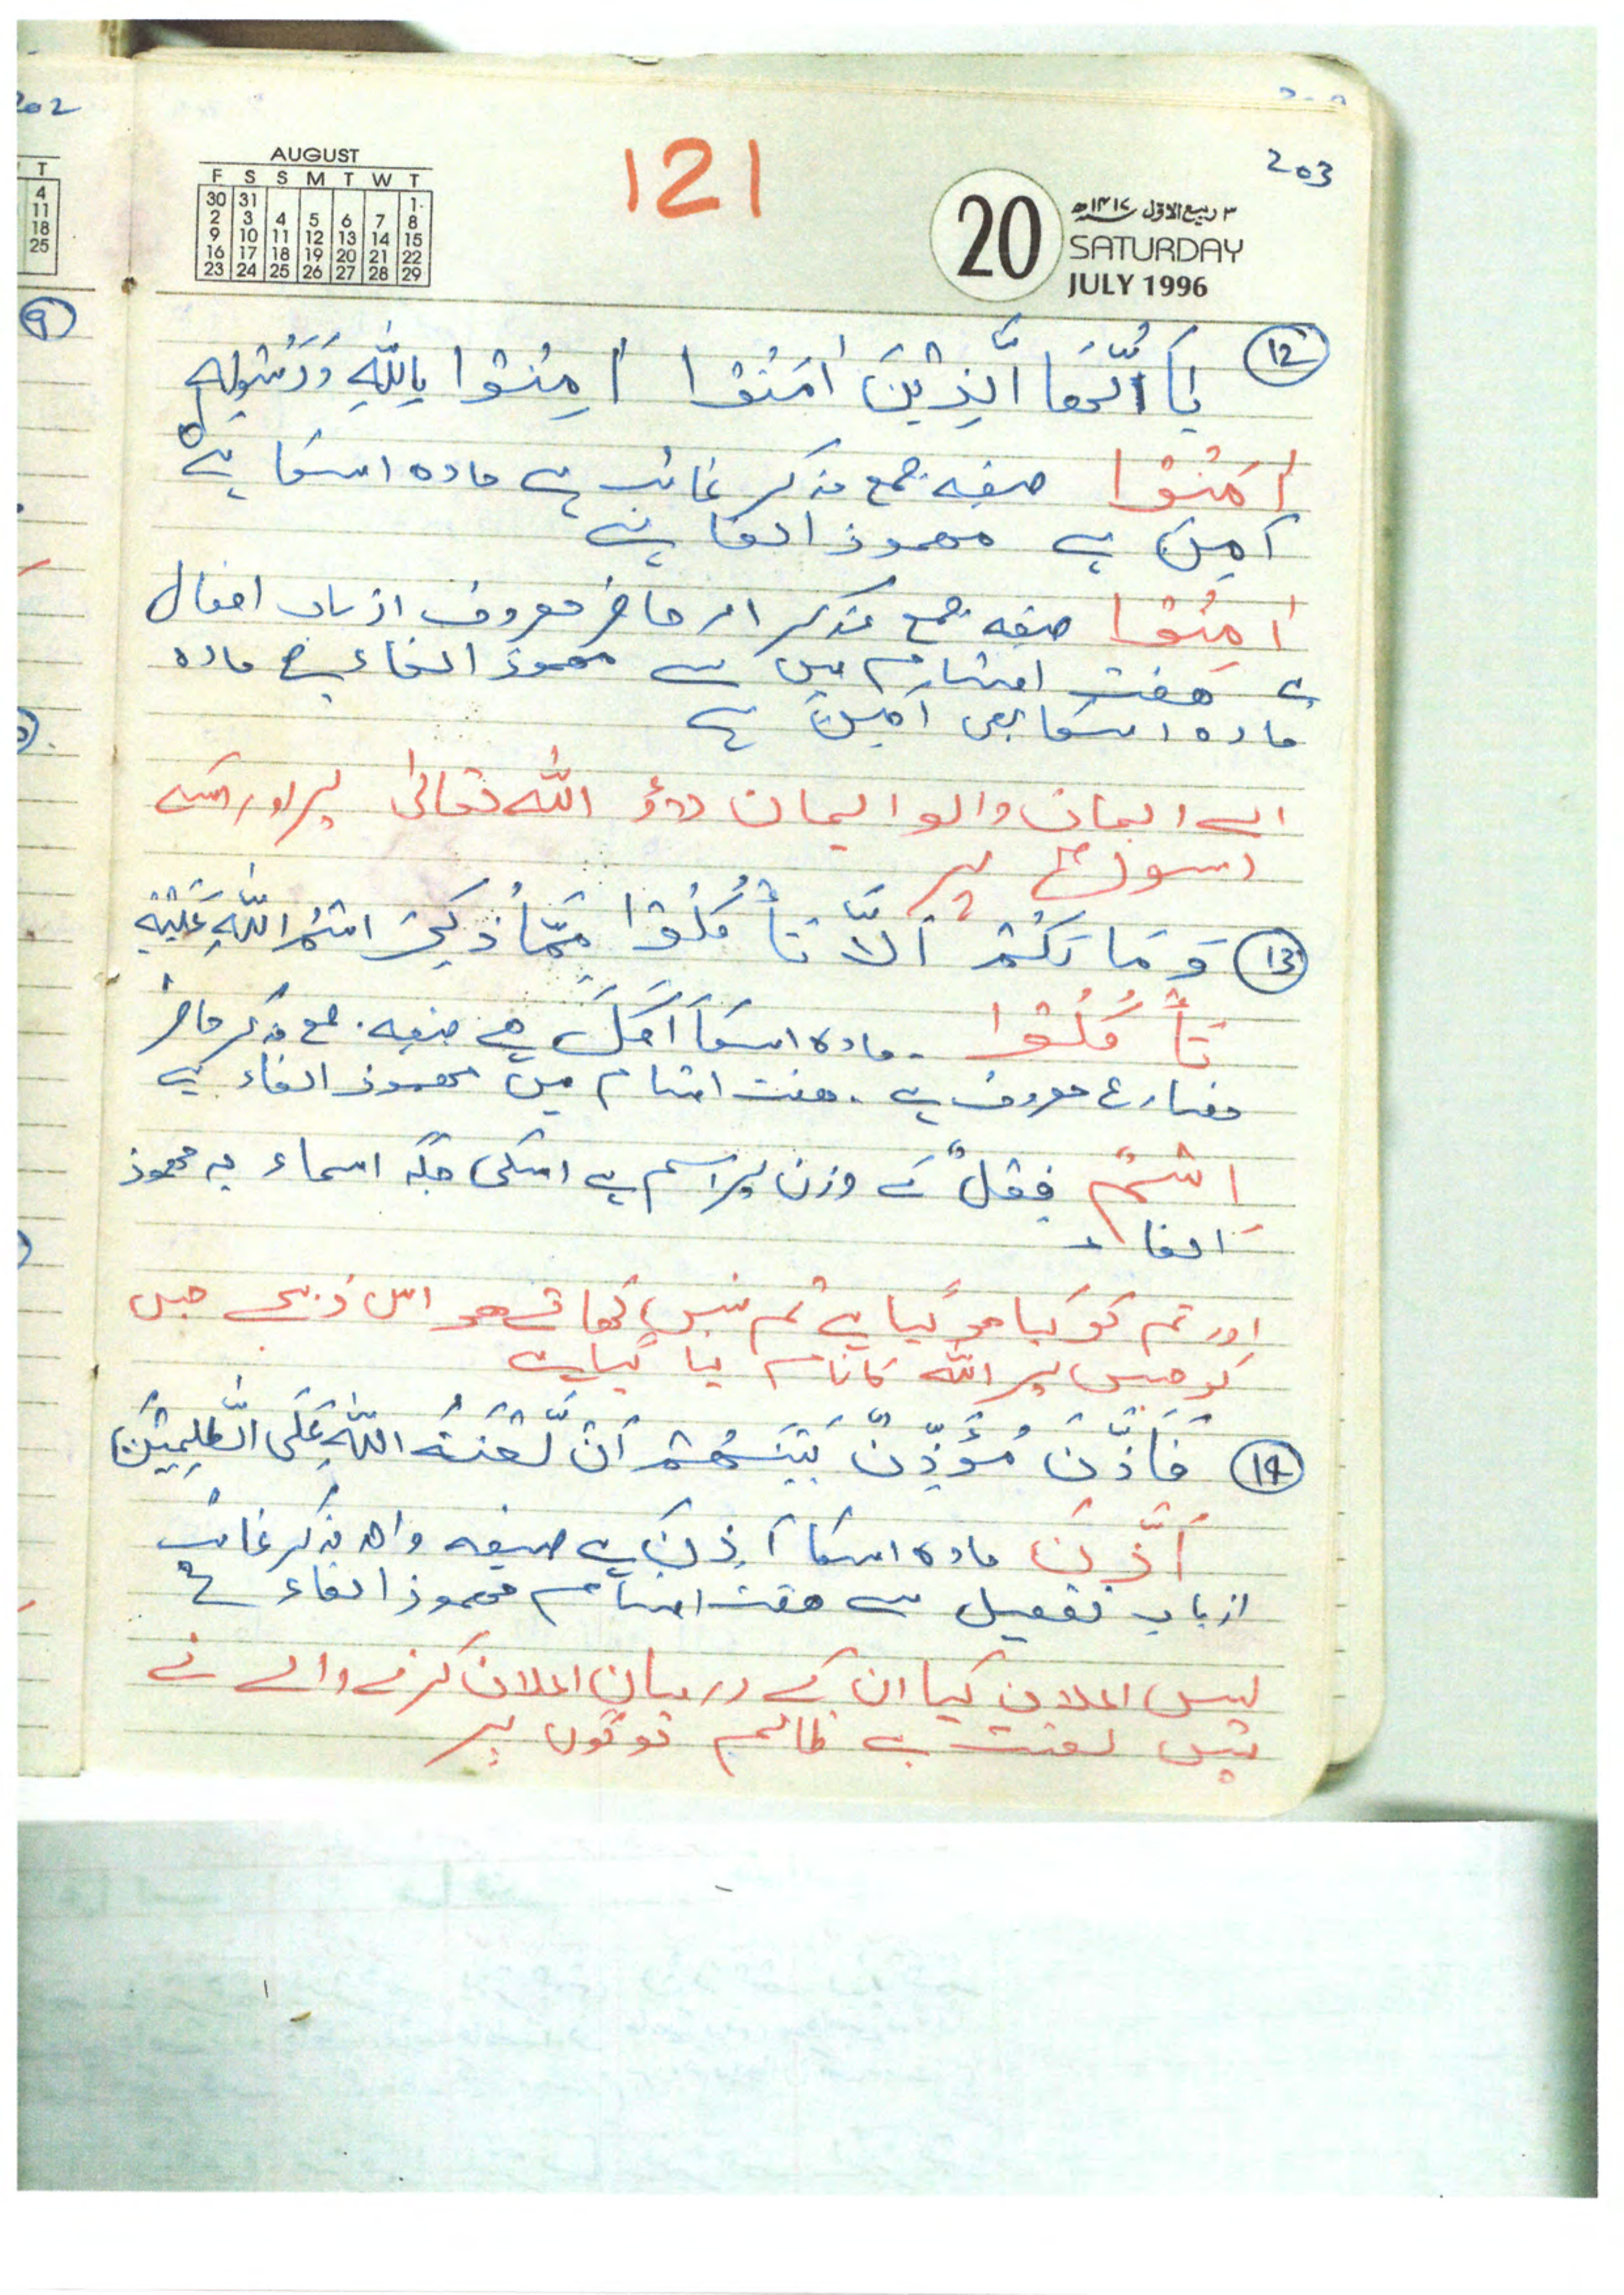 202
203
121
AUGUST
F S S M T W T
30 31 1
2 3 4 5 6 7 8
9 10 11 12 13 14 15
16 17 18 19 20 21 22
23 24 25 26 27 28 29
T
4
11
18
25
20
۳ ربیع الاوّل ۱۴۱۷ھ
SATURDAY
JULY 1996
9
12 یَا اَیُّھَا الَّذِیْنَ اٰمَنُوْا اٰمِنُوْا بِاللّٰہِ وَرَسُوْلِہٖ
اٰمَنُوْا صیغہ جمع مذکر غائب ہے مادہ اسکا ہے
اَمِنَ ہے مھموز الفا ہے
اٰمِنُوْا صیغہ جمع مذکر امر حاضر معروف از باب افعال
ہے ھفت اقسام میں سے مھموز الفاء ہے مادہ
مادہ اسکا بھی اَمِنَ ہے
اے ایمان والو ایمان لاؤ اللّٰہ تعالیٰ پر اور اسکے
رسول پر
13 وَمَا لَکُمْ اَلَّا تَأْکُلُوْا مِمَّا ذُکِرَ اسْمُ اللّٰہِ عَلَیْہِ
تَأْکُلُوْا ۔ مادہ اسکا اَکَلَ ہے صیغہ جمع مذکر حاضر
مضارع معروف ہے ۔ ھفت اقسام میں مھموز الفاء ہے
اِسْمٌ فِعْلٌ کے وزن پر اسم ہے اسکی جگہ اسماء یہ مھموز
الفاء
اور تم کو کیا ھو گیا ہے تم نہیں کھاتے ھو اس ذبیحے جس
کو جس پر اللّٰہ کا نام لیا گیا ہے
14 فَاَذَّنَ مُؤَذِّنٌ بَیْنَھُمْ اَنْ لَّعْنَۃُ اللّٰہِ عَلَی الظّٰلِمِیْنَ
اَذَّنَ مادہ اسکا اَذِنَ ہے صیغہ واحد مذکر غائب
از باب تفعیل سے ھفت اقسام مھموز الفاء ہے
پس اعلان کیا ان کے درمیان اعلان کرنے والے نے
پس لعنت ہے ظالم لوگوں پر